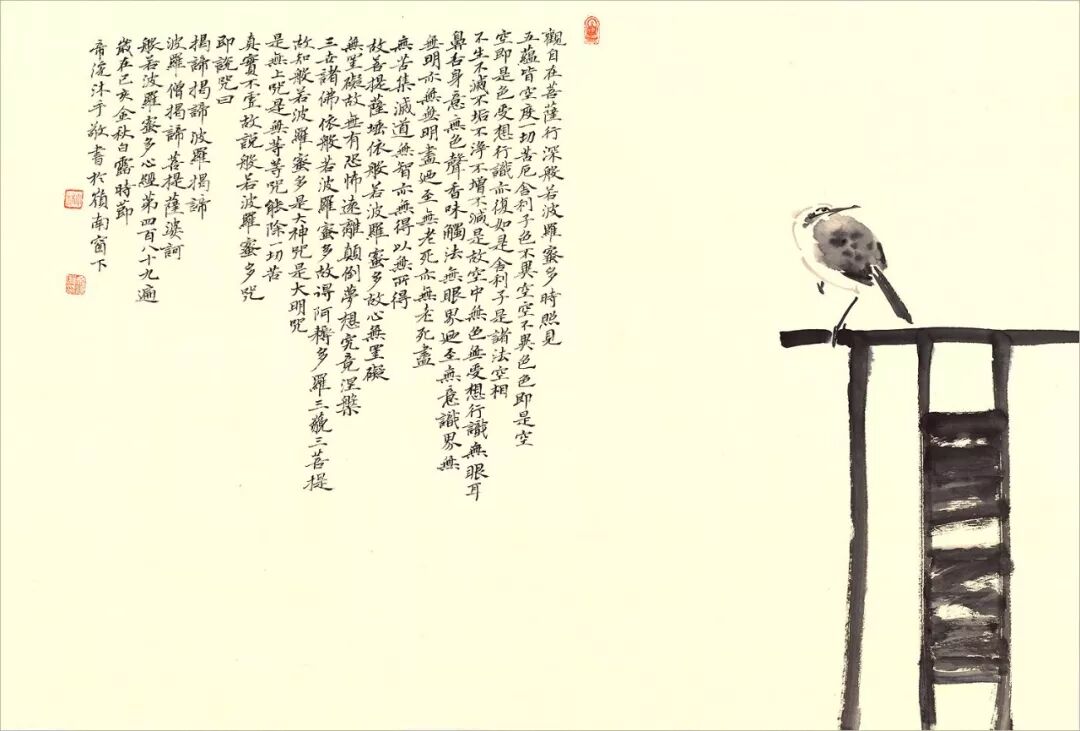 觀自在菩薩行深般若波羅蜜多時照見
五蘊皆空度一切苦厄舍利子色不異空空不異色色即是空
空即是色受想行識亦復如是舍利子是諸法空相
不生不滅不垢不淨不增不減是故空中無色無受想行識無眼耳
鼻舌身意無色聲香味觸法無眼界廼至無意識界無
無明亦無無明盡廼至無老死亦無老死盡
無苦集滅道無智亦無得以無所得
故菩提薩埵依般若波羅蜜多故心無罣礙
無罣礙故無有恐怖遠離顛倒夢想究竟涅槃
三世諸佛依般若波羅蜜多故得阿耨多羅三藐三菩提
故知般若波羅蜜多是大神咒是大明咒
是無上咒是無等等咒能除一切苦
真實不虛故說般若波羅蜜多咒
即說咒曰
揭諦揭諦波羅揭諦
波羅僧揭諦菩提薩婆訶
般若波羅蜜多心經第四百八十九遍
歲在己亥金秋白露時節
沐手敬書於嶺南窗下